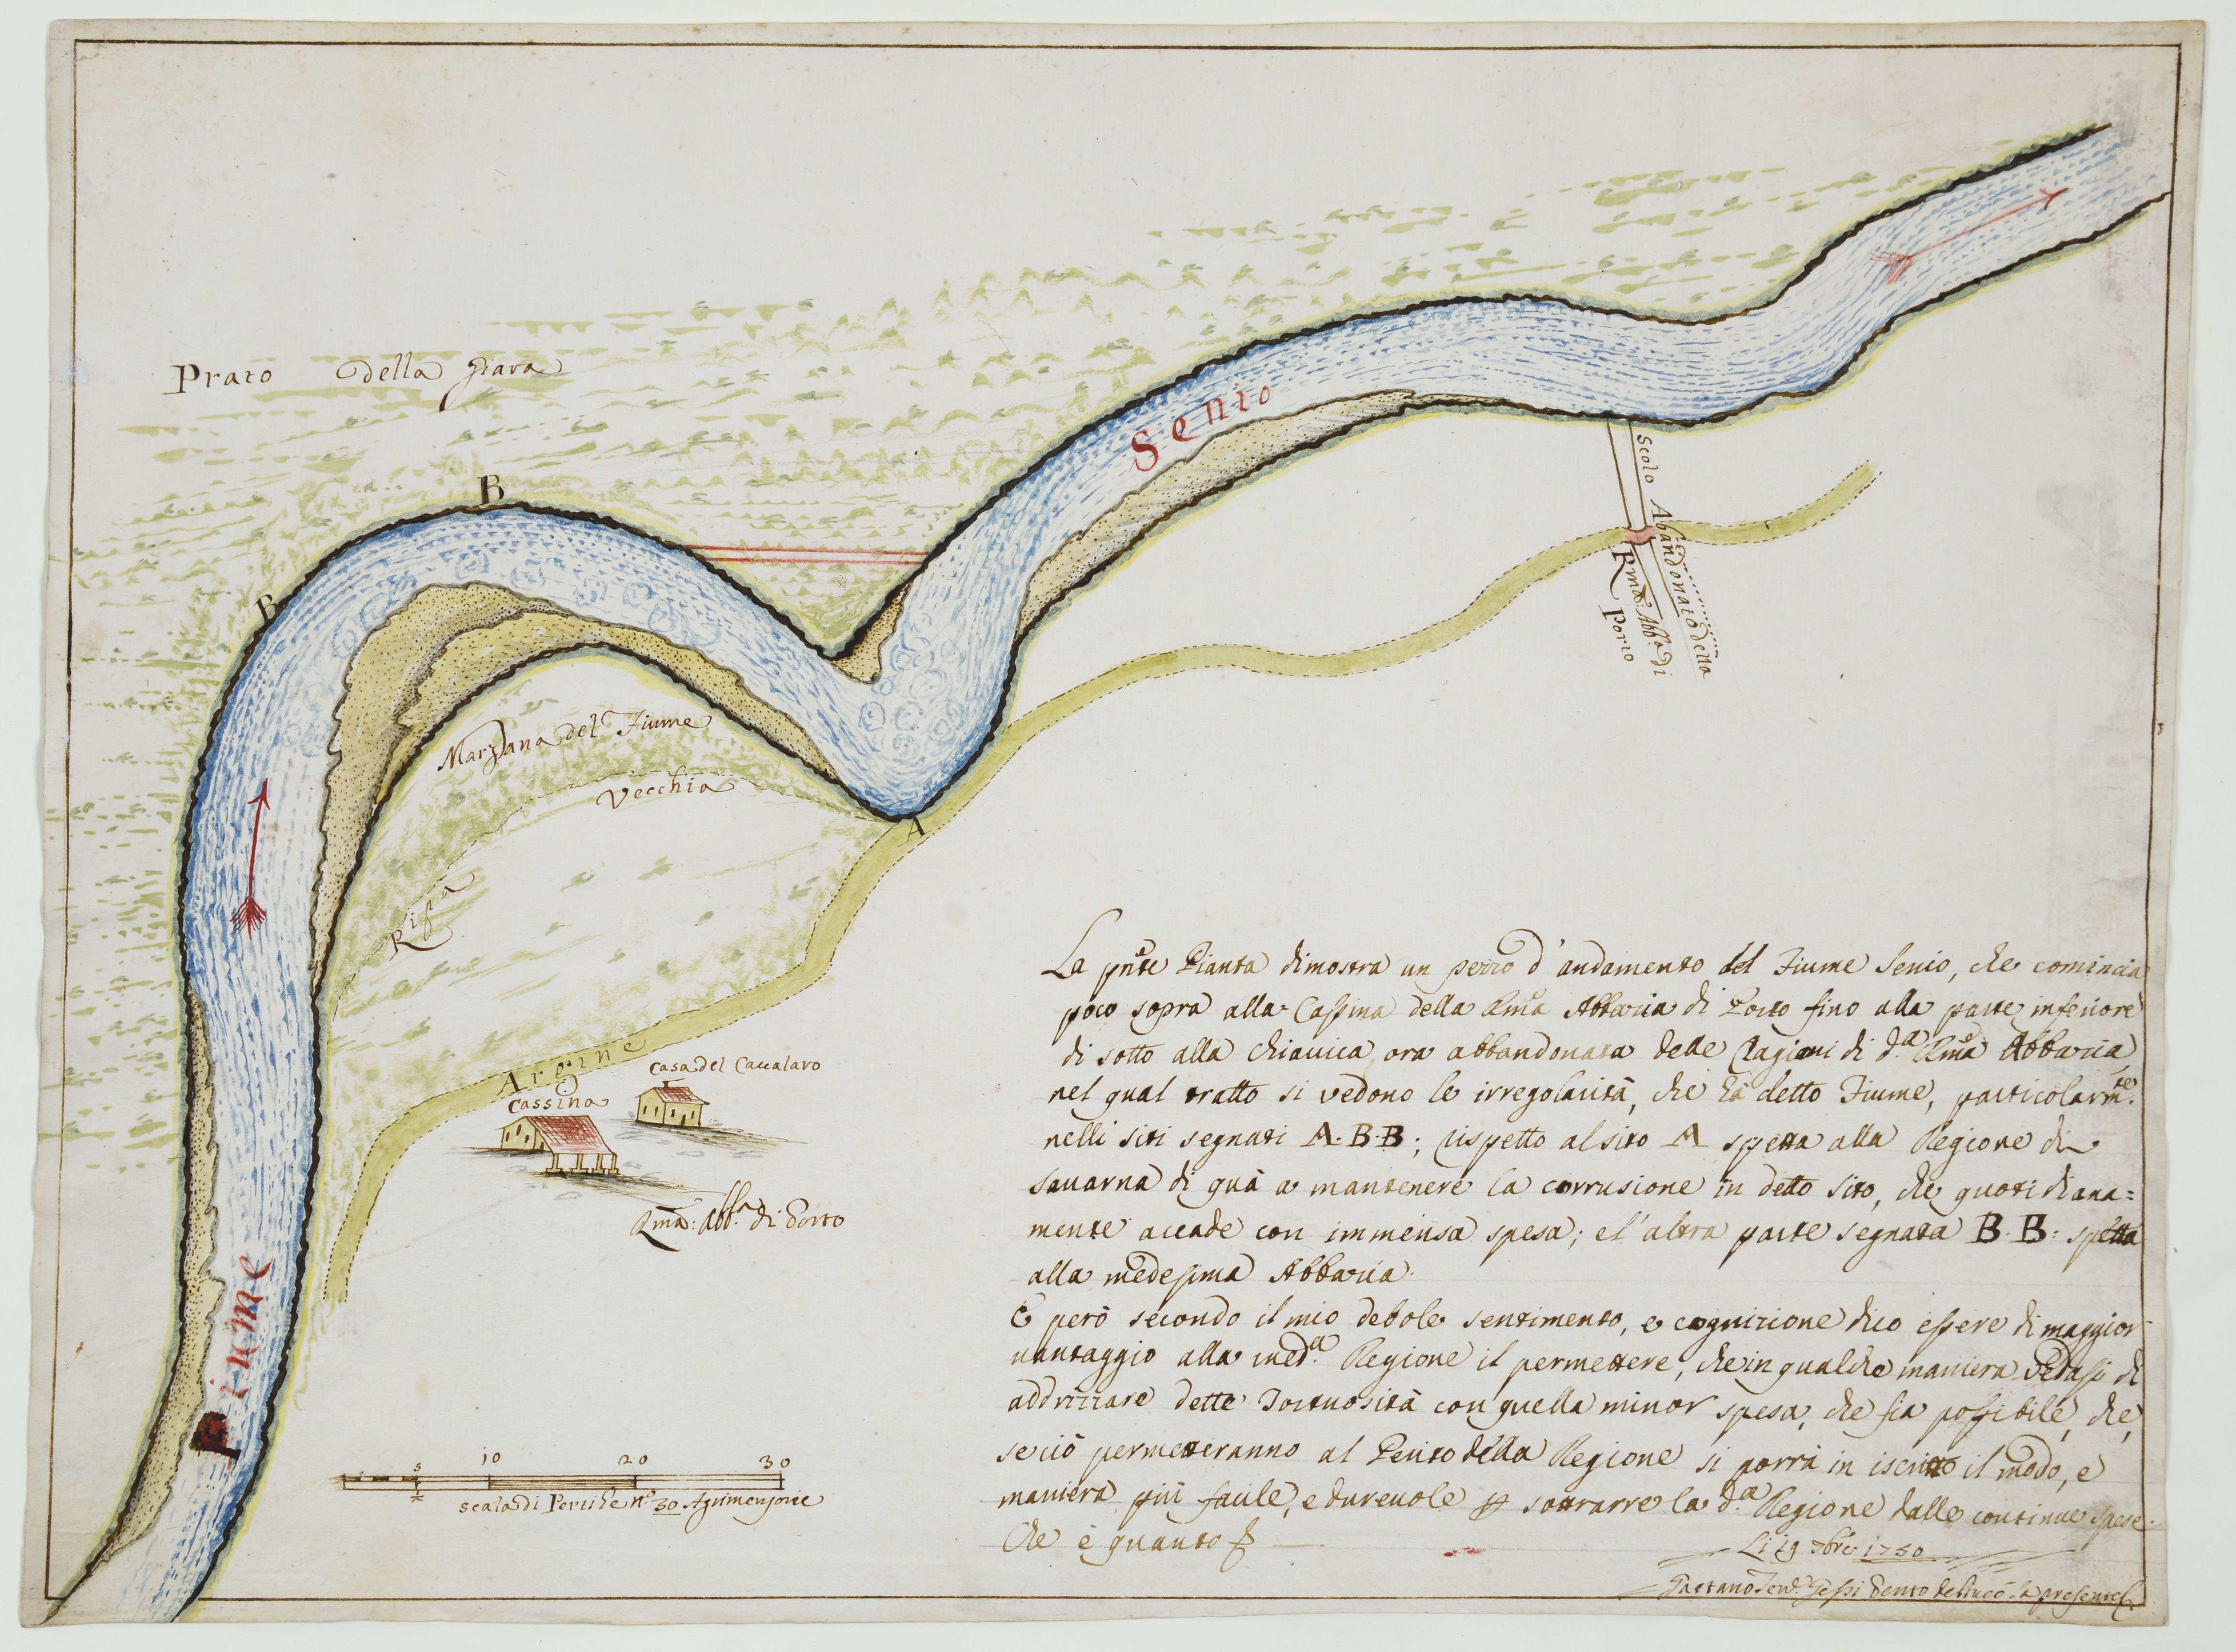 Prato della Giara
B
B
Senio
Scolo Abbandonato della
Rmã: Abb.ª di
Porto
Marzana del Fiume
Vecchia
Ripa
A
Argine
Casa del Caualaro
Cassina
Rmã: Abb.ª di Porto
Fiume
5 10 20 30
scala di Pertiche n.º 30 Agrimensorie
La pñte Pianta dimostra un pezzo d'andamento del Fiume Senio, che comincia
poco sopra alla Cassina della Rmã Abbazia di Porto fino alla parte inferiore
di sotto alla chiauica ora abbandonata delle Ragioni di d.ª Rmã Abbazia
nel qual tratto si vedono le irregolarità, che hà detto Fiume, particolarm.te
nelli siti segnati A. B. B; rispetto al sito A spetta alla Regione di
Sauarna di quà a mantenere la corrusione in detto sito, che quotidiana=
mente accade con immensa spesa; e l'altra parte segnata B. B: spetta
alla medesima Abbazia.
E però secondo il mio debole sentimento, e cognizione dico essere di maggior
uantaggio alla med.ª Regione il permettere, che in qualche maniera di
addrizzare dette Tortuosità con quella minor spesa, che sia possibile, che,
se ciò permetteranno al Perito della Regione si porrà in iscritto il modo, e
maniera più facile, e dureuole p sottrarre la d.ª Regione dalle continue spese.
Che è quanto
Li 19 1750
Gaetano Gessi Perito delineò la presente